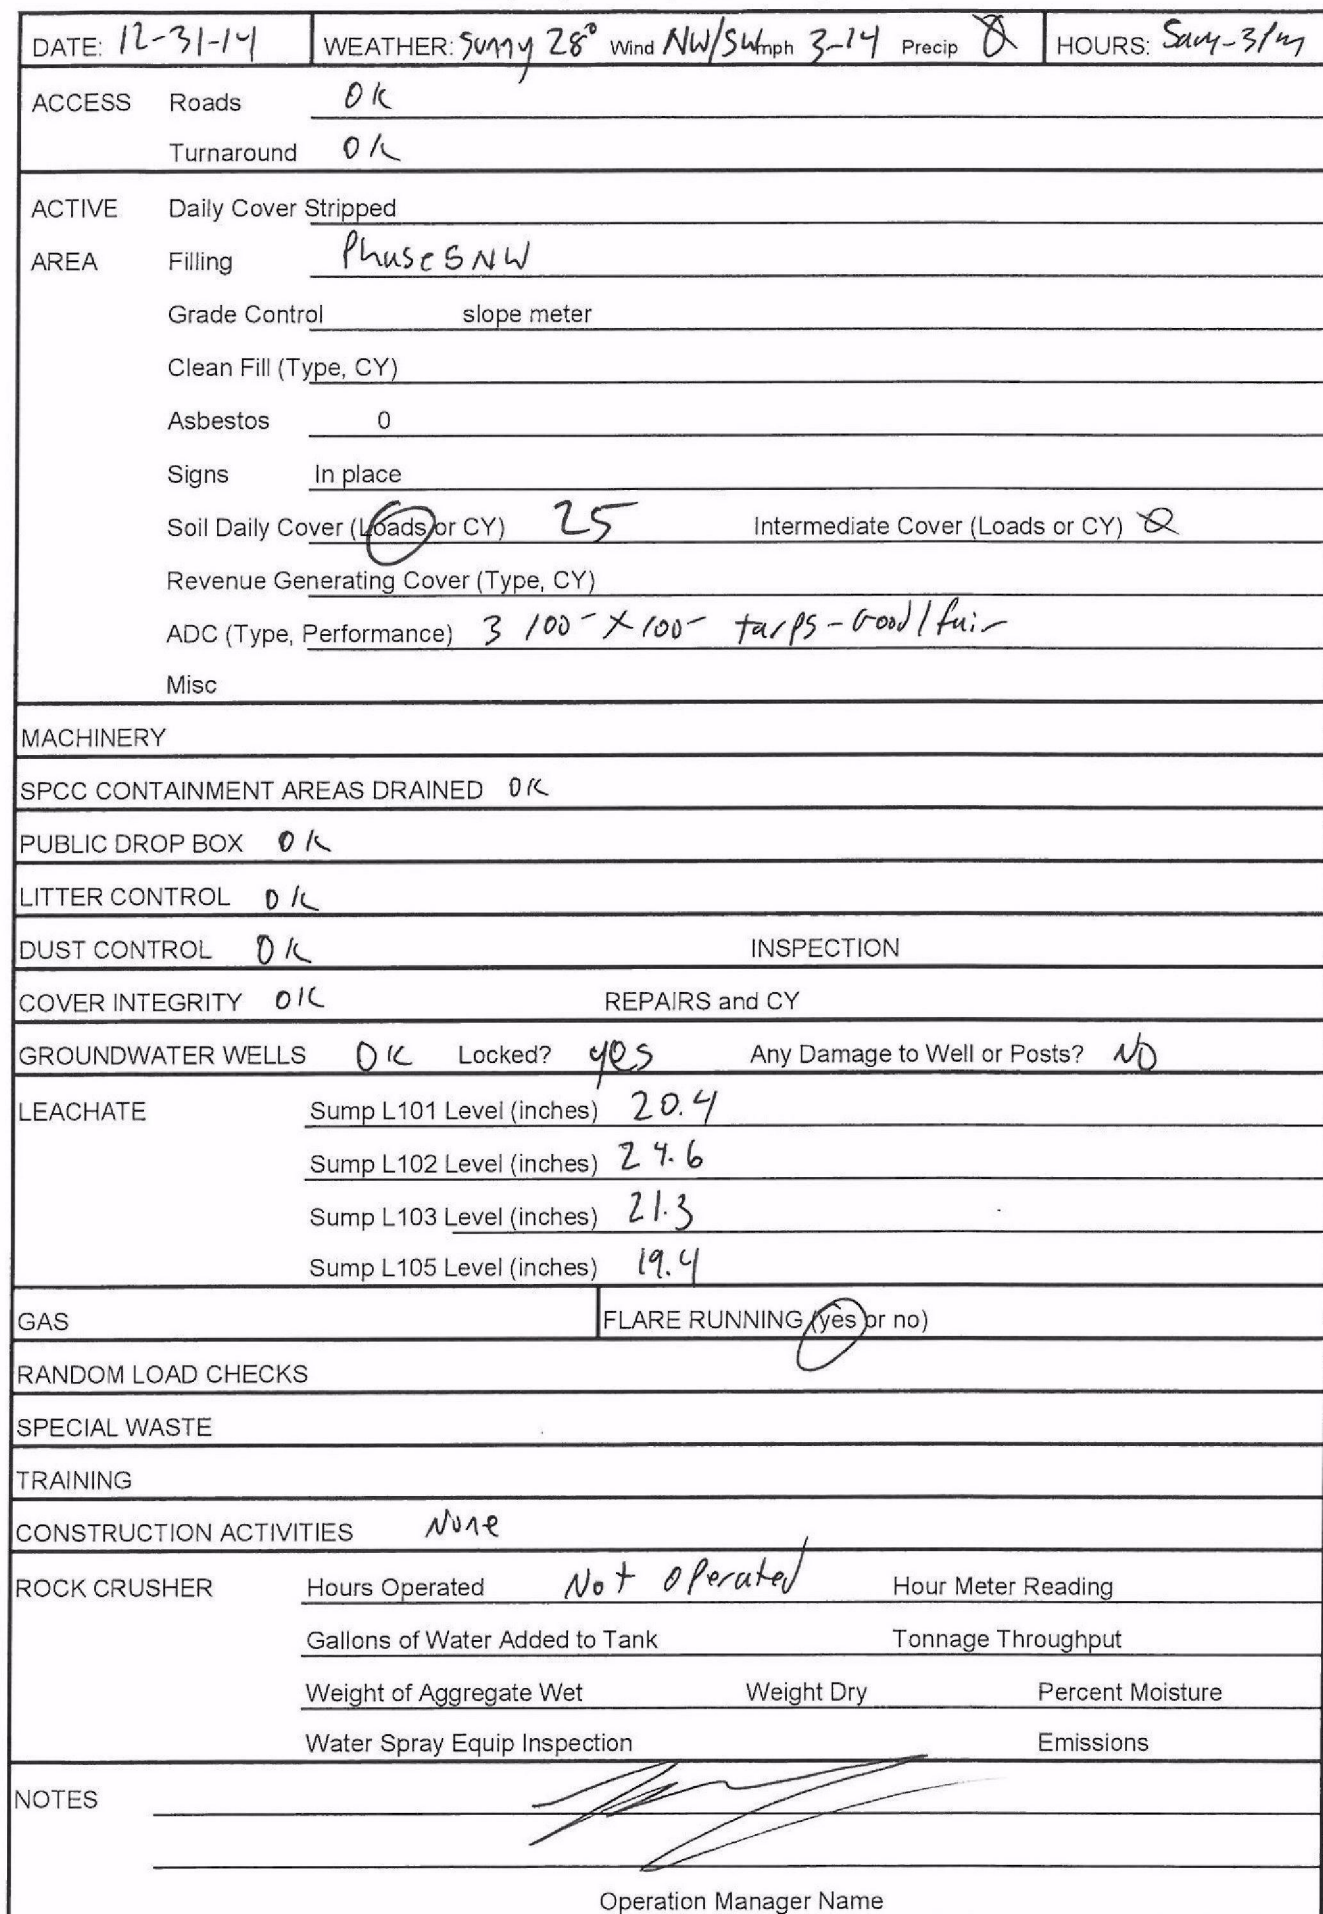 DATE: 12-31-14 WEATHER: Sunny 28° Wind NW/SW mph 3-14 Precip 0 HOURS: 5am-3pm
ACCESS Roads OK
Turnaround OK
ACTIVE Daily Cover Stripped
AREA Filling Phase 5 NW
Grade Control slope meter
Clean Fill (Type, CY)
Asbestos 0
Signs In place
Soil Daily Cover (Loads or CY) 25 Intermediate Cover (Loads or CY) 0
Revenue Generating Cover (Type, CY)
ADC (Type, Performance) 3 100' X 100' tarps - Good / fair
Misc
MACHINERY
SPCC CONTAINMENT AREAS DRAINED OK
PUBLIC DROP BOX OK
LITTER CONTROL OK
DUST CONTROL OK INSPECTION
COVER INTEGRITY OK REPAIRS and CY
GROUNDWATER WELLS OK Locked? yes Any Damage to Well or Posts? NO
LEACHATE Sump L101 Level (inches) 20.4
Sump L102 Level (inches) 24.6
Sump L103 Level (inches) 21.3
Sump L105 Level (inches) 19.4
GAS FLARE RUNNING (yes or no)
RANDOM LOAD CHECKS
SPECIAL WASTE
TRAINING
CONSTRUCTION ACTIVITIES None
ROCK CRUSHER Hours Operated Not Operated Hour Meter Reading
Gallons of Water Added to Tank Tonnage Throughput
Weight of Aggregate Wet Weight Dry Percent Moisture
Water Spray Equip Inspection Emissions
NOTES
Operation Manager Name